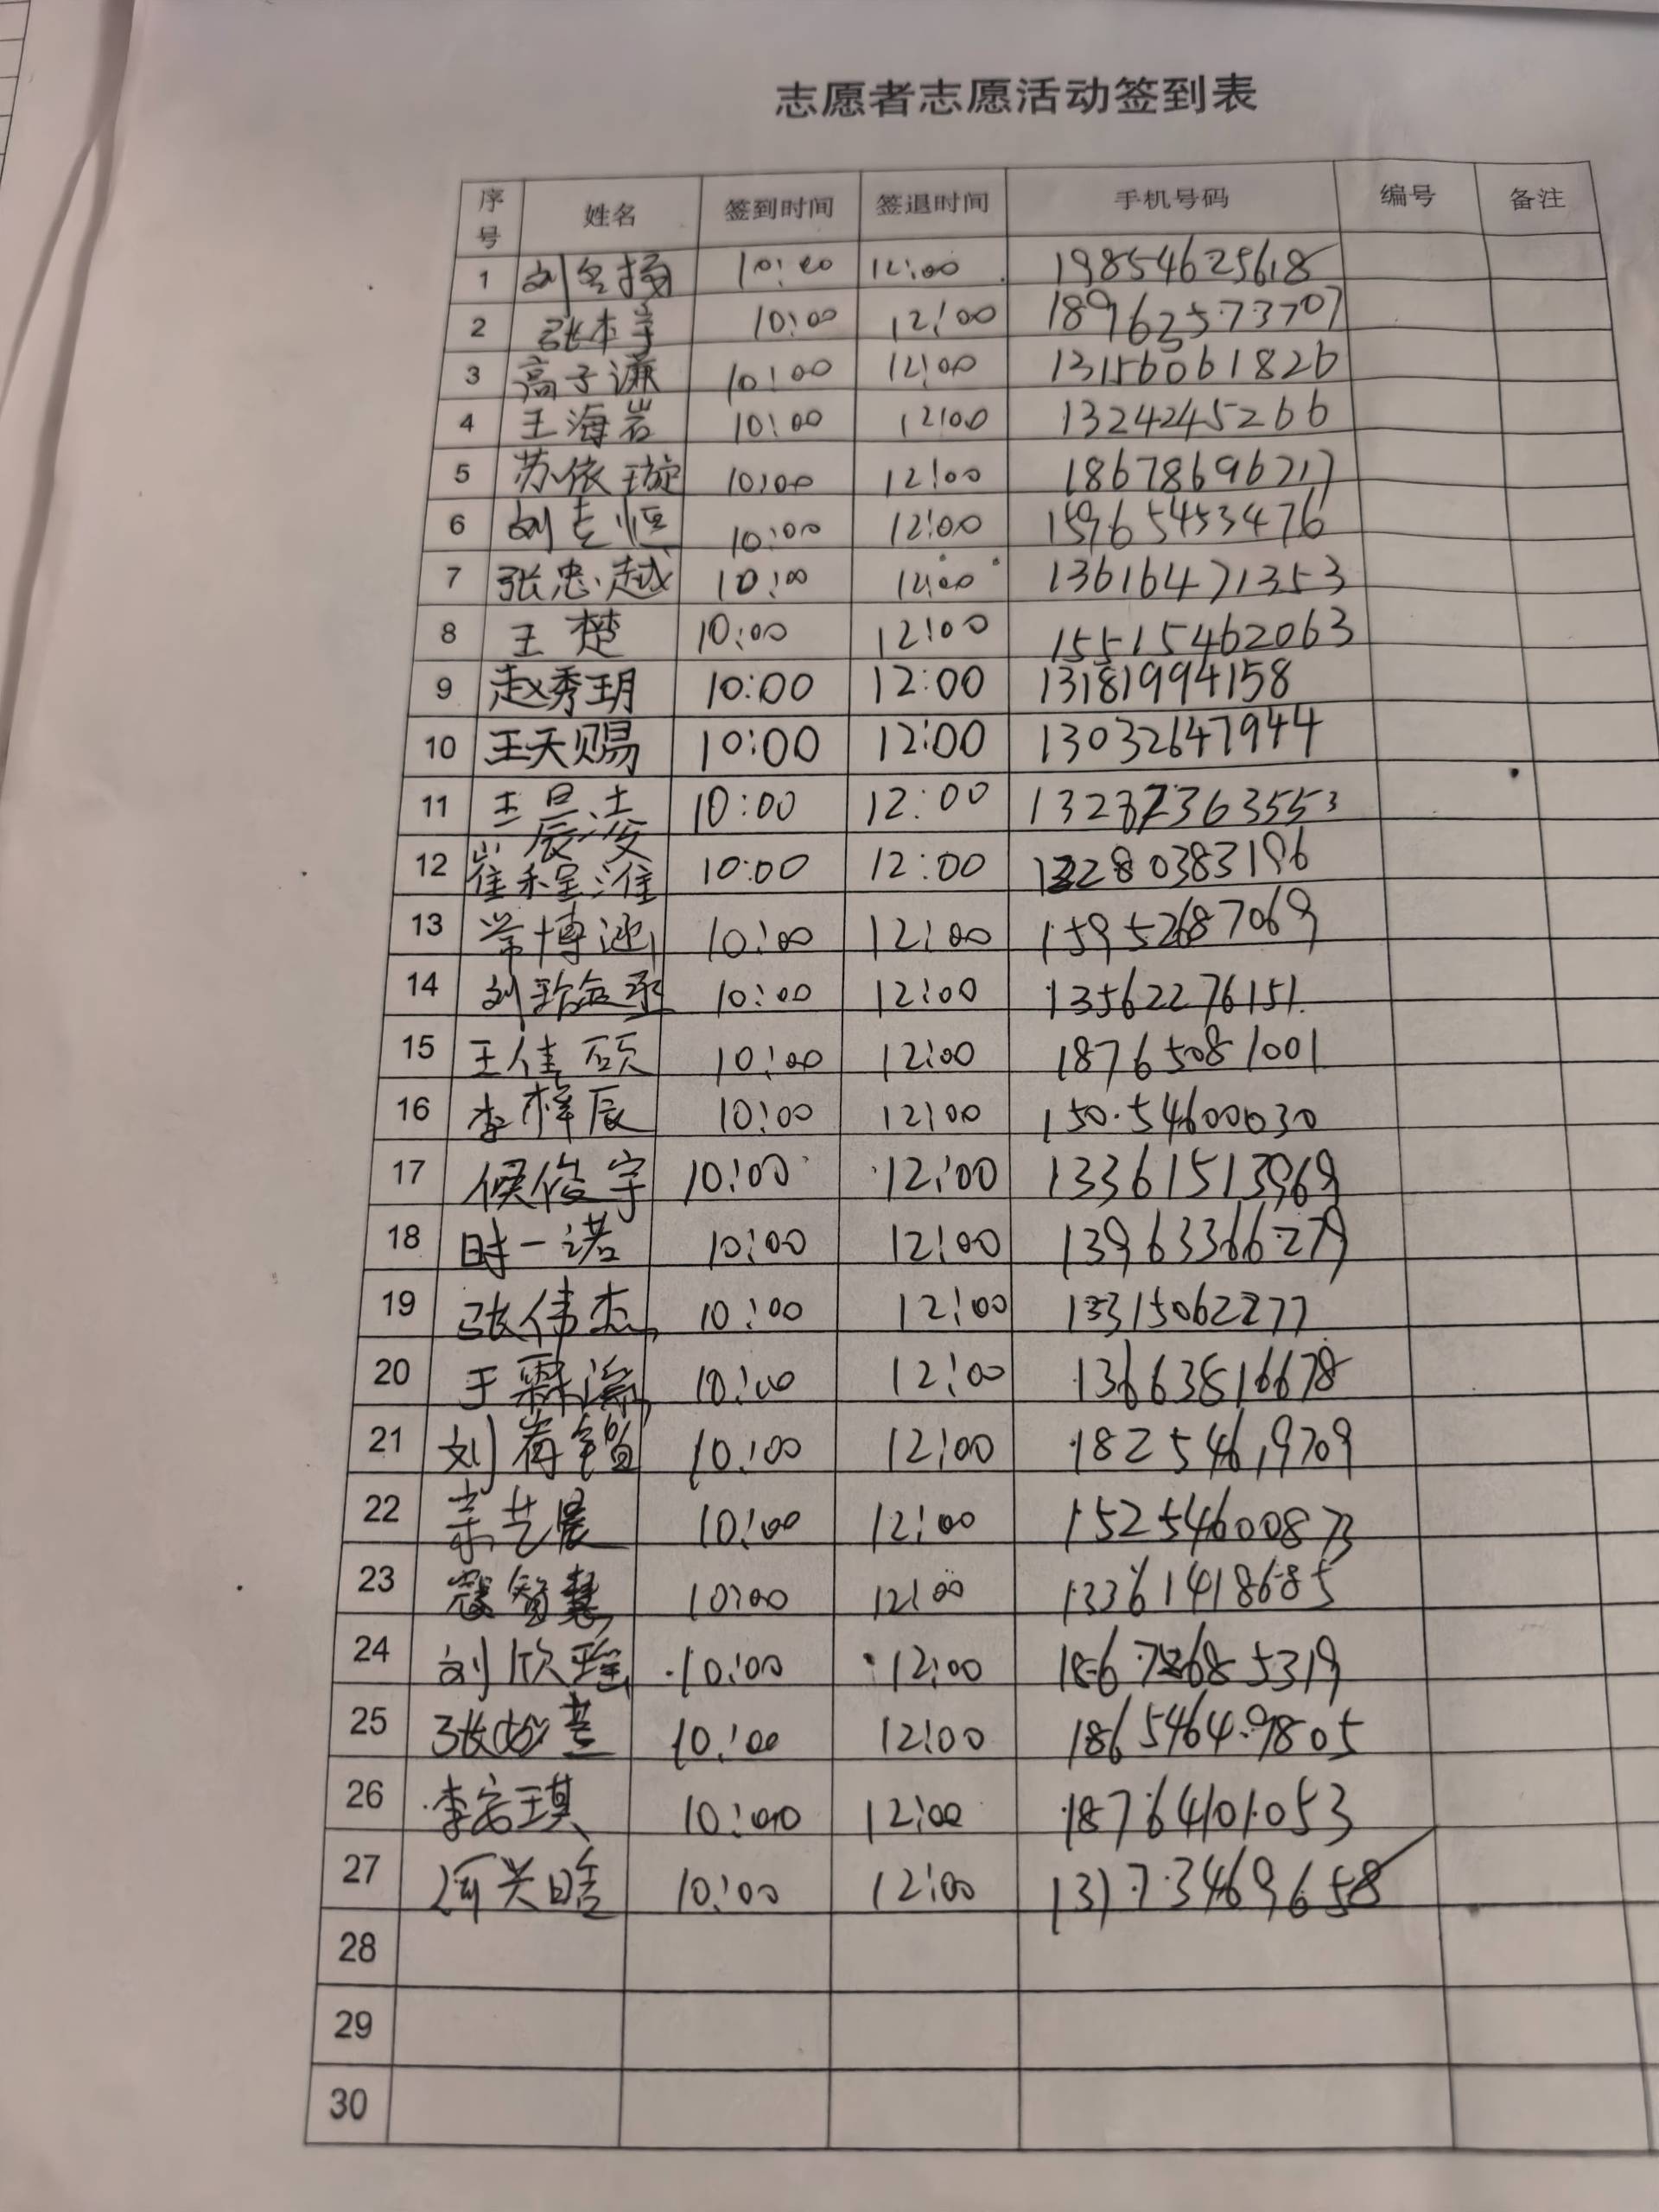 志愿者志愿活动签到表
序号 姓名 签到时间 签退时间 手机号码 编号 备注
1 刘名扬 10:00 12:00 19854625618
2 张本宇 10:00 12:00 18962573707
3 高子谦 10:00 12:00 13156061826
4 王海岩 10:00 12:00 1324245266
5 苏依璇 10:00 12:00 18678696717
6 刘志恒 10:00 12:00 15965453476
7 张忠越 10:00 12:00 13616471353
8 王楚 10:00 12:00 15515462063
9 赵秀玥 10:00 12:00 13181994158
10 王天赐 10:00 12:00 13032647944
11 王晨 10:00 12:00
12 崔程淮 10:00 12:00 13280383196
13 常博涵 10:00 12:00 15952687069
14 刘 10:00 12:00 13562276151
15 王佳硕 10:00 12:00 18765081001
16 李梓辰 10:00 12:00 150.54600030
17 侯俊宇 10:00 12:00 13361513969
18 时一诺 10:00 12:00 13963366279
19 张伟杰 10:00 12:00 13315062277
20 于霖 10:00 12:00 13663816678
21 刘 10:00 12:00 18254619709
22 艺晨 10:00 12:00 15254600873
23 寇智慧 10:00 12:00 13361418685
24 刘欣瑶 10:00 12:00
25 张 10:00 12:00 18654649805
26 李安琪 10:00 12:00 18764101053
27 10:00 12:00 13173469658
28
29
30